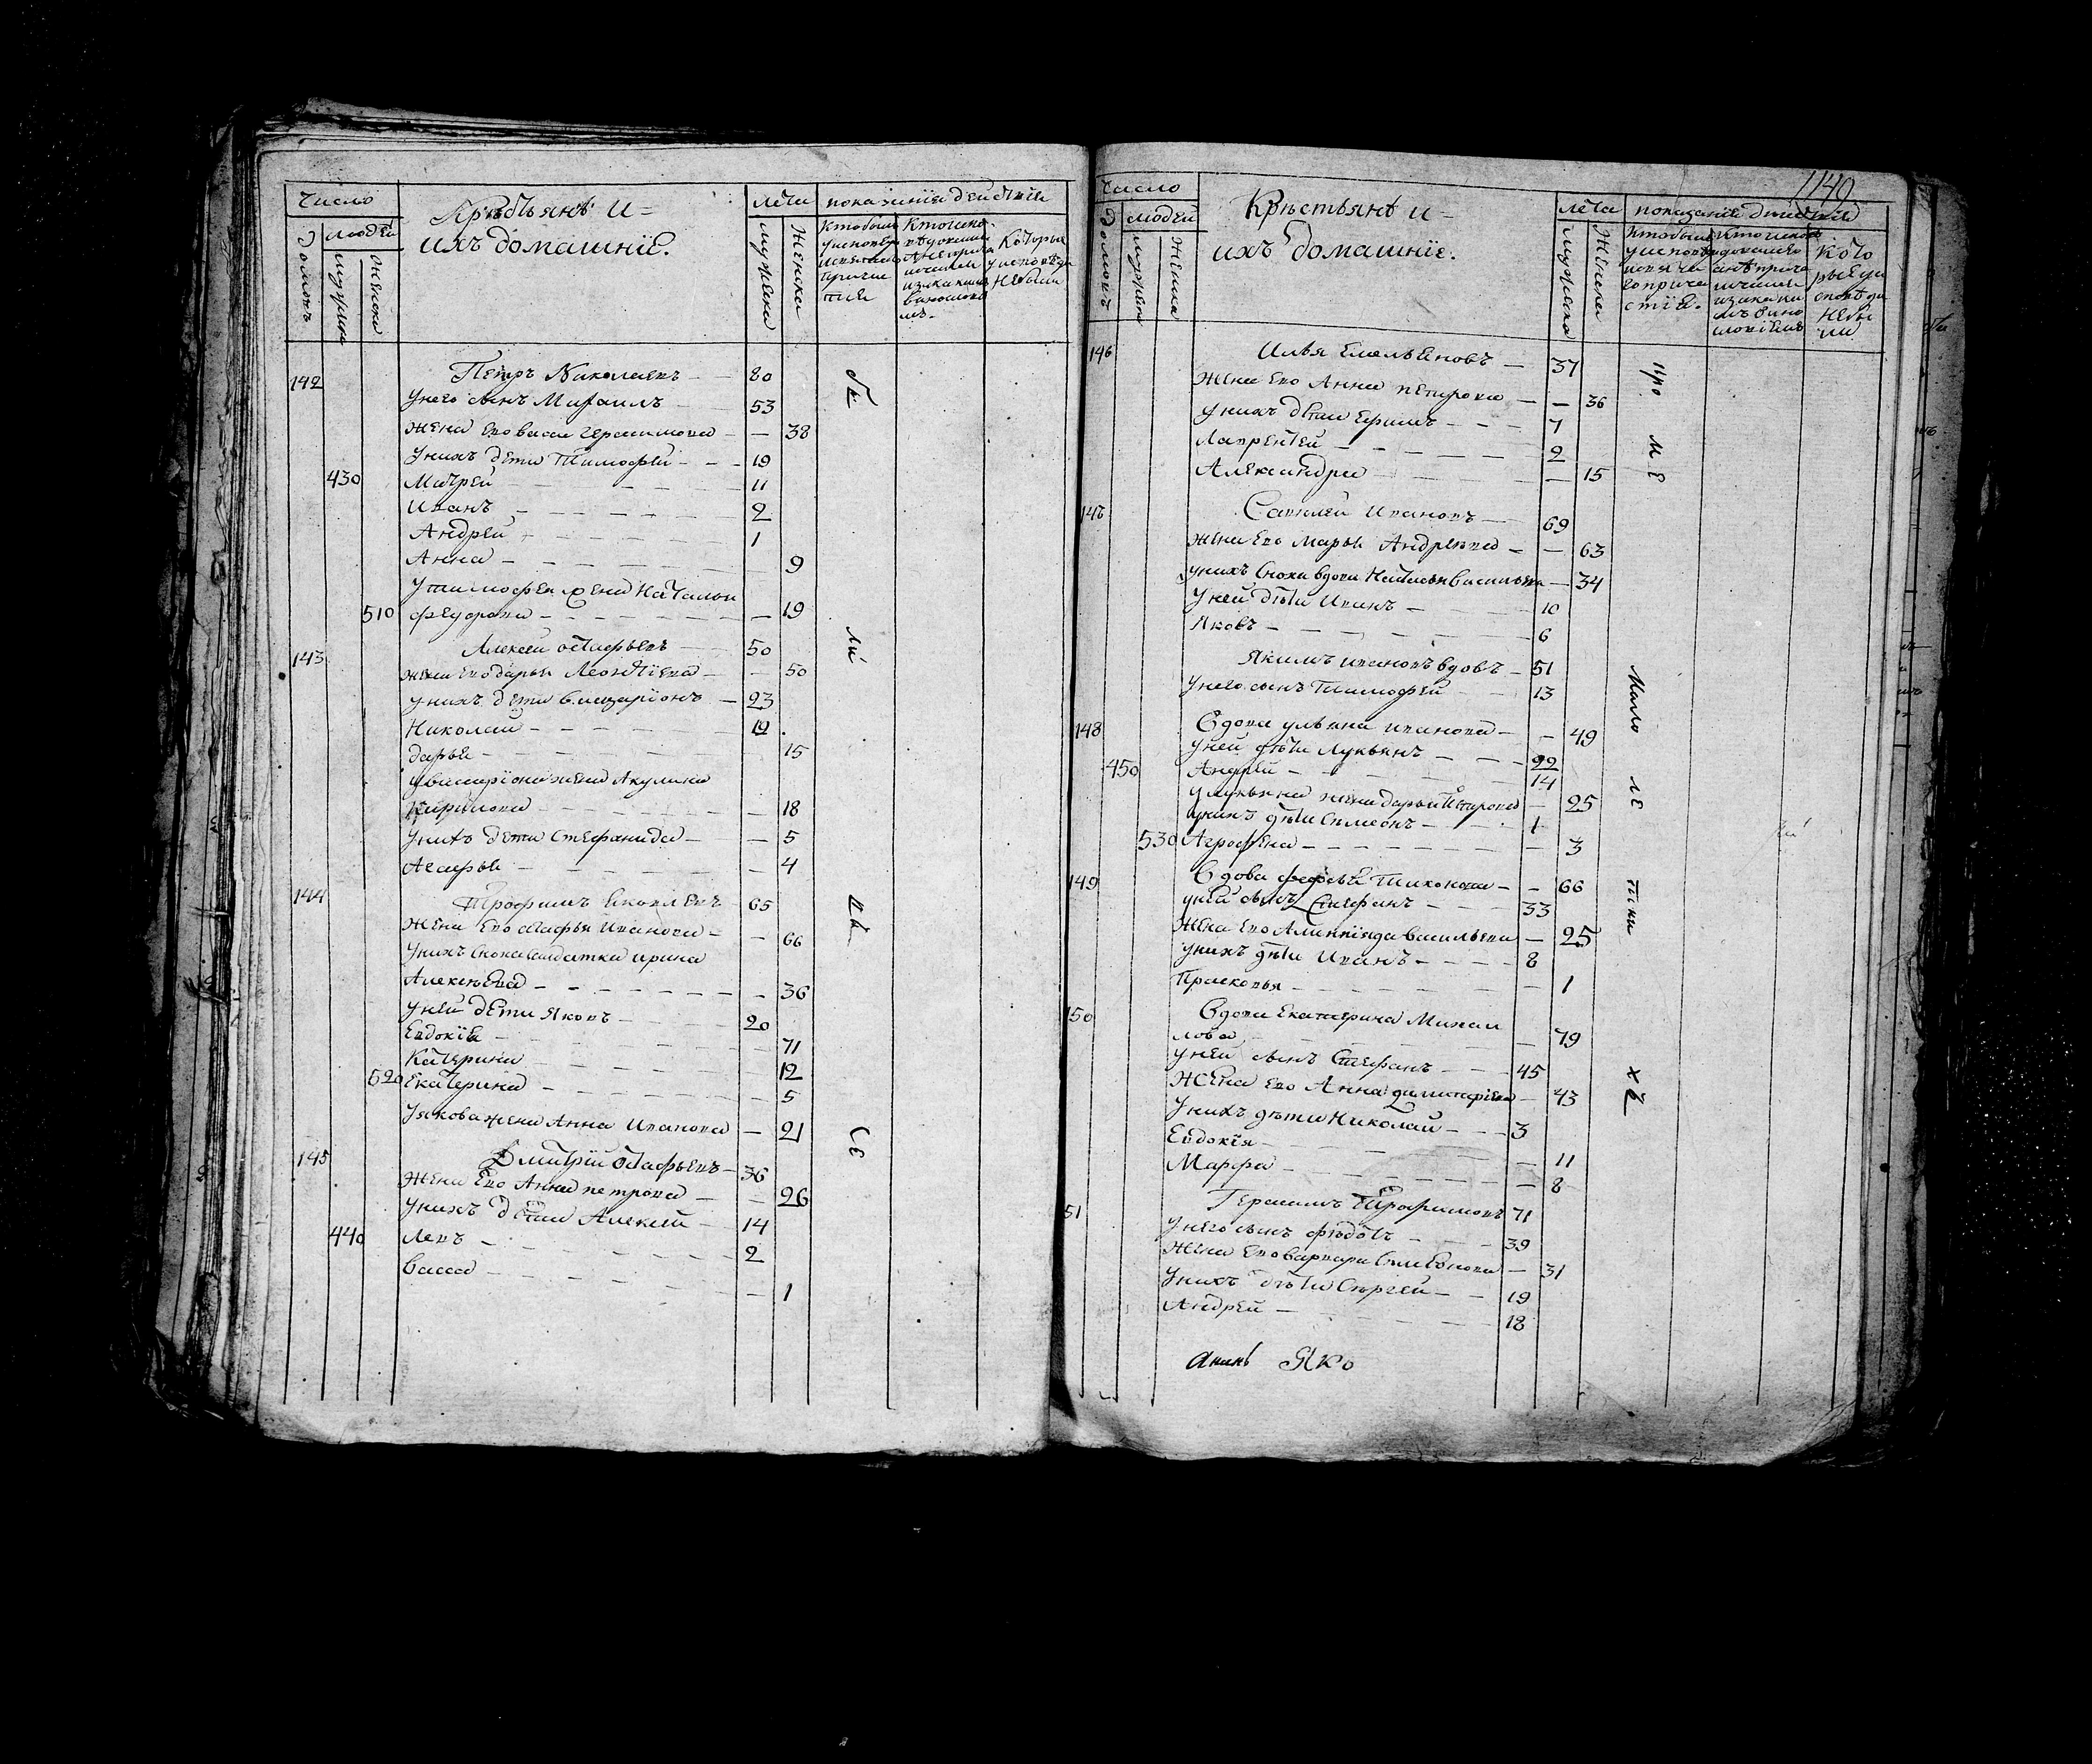 число
людей
домовъ
мужска
женска
Крестьянѣ и=
ихъ домашнїе.
лета
мужска
женска
показанїе действїе
142 Петръ Николаевъ — 80
у него сынъ Михаилъ 53
жена его васса герасимова — — 38
у нихъ дети Тимофей — — 19
430 Матфей — — — 11
Иванъ — — — 2
Андрей — — — 1
Анна — — — 9
у тимофея жена наталья
510 федорова — — — 19
143 Алексей остафьевъ 50
жена его дарья Леонтїева — — 50
у нихъ дети виссарїонъ — 23
Николай — — — 19
дарья — — — 15
у виссарїона жена Акулина
Кирилова — — — 18
у нихъ дети Стефанида — — 5
Агафья — — — 4
144 Трофимъ Яковлевъ 65
жена его агафья Иванова — — 66
у нихъ сноха салдатка ирина
Алексѣева — — — 36
у ней дети Яковъ — — 20
Евдокїя — — — 71
Катерина — — — 12
520 Екатерина — — — 5
у якова жена Анна Иванова — 21
145 Дмитрїй остафьевъ — 36
жена его Анна петрова — — 26
у нихъ дети Алексей — 14
440 Левъ — — — 2
васса — — — 1
бы
ли
вь
се
1140
число
людей
домовъ
мужска
женска
Крѣстьянѣ и=
ихъ домашнїе.
лета
мужска
женска
показанїе
146 Илья Емельяновъ — 37
жена его Анна петрова — — 36
у нихъ дети Ефимъ — — — 7
Лаврентей — — — 2
Александра — — — 15
147 Савелей Ивановъ — 69
жена его марья Андреева — — 63
у нихъ сноха вдова Наталья васильева — 34
у ней дѣти Иванъ — 10
Яковъ — — — 6
Якимъ ивановъ вдовъ — 51
у него сынъ Тимофей — — 13
148 вдова ульяна иванова — — 49
у ней дѣти Лукьянъ — — — 22
450 Андрей — — — 14
у лукьяна жена дарья Петрова — 25
у нихъ дѣти Симеонъ — — 1
530 Агрофена — — — 3
149 вдова фефелья Тихонова — — 66
у ней сынъ Стефанъ — — — 33
жена его Алимпїяда васильева — 25
у нихъ дѣти Иванъ — — — — 8
Прасковья — — — 1
150 вдова Екатерина Михаи
лова — — 79
у ней сынъ Стефанъ — — — 45
жена его Анна димитрїева — 43
у нихъ дѣти Николай — — — 3
Евдокїя — — — 11
Марфа — — — 8
51 Герасимъ Трофимовъ 71
у него сынъ федотъ — — — 39
жена его варвара симеонова — 31
у нихъ дѣти Сергей — — 19
Андрей — — — 18
про
ме
мало
ле
тки
хъ
Яко